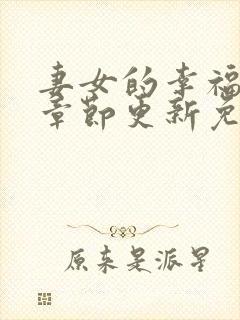 妻女的幸福
章节更新免
原来是派星